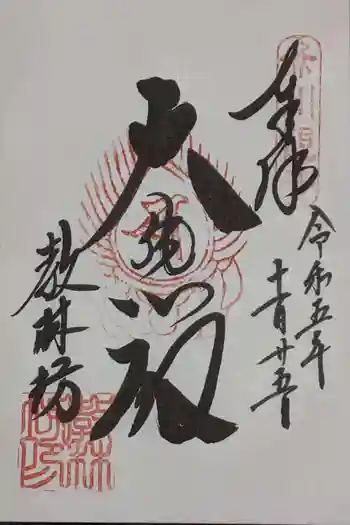 奉拝
令和五年
十一月廿五日
大悲殿
教林坊